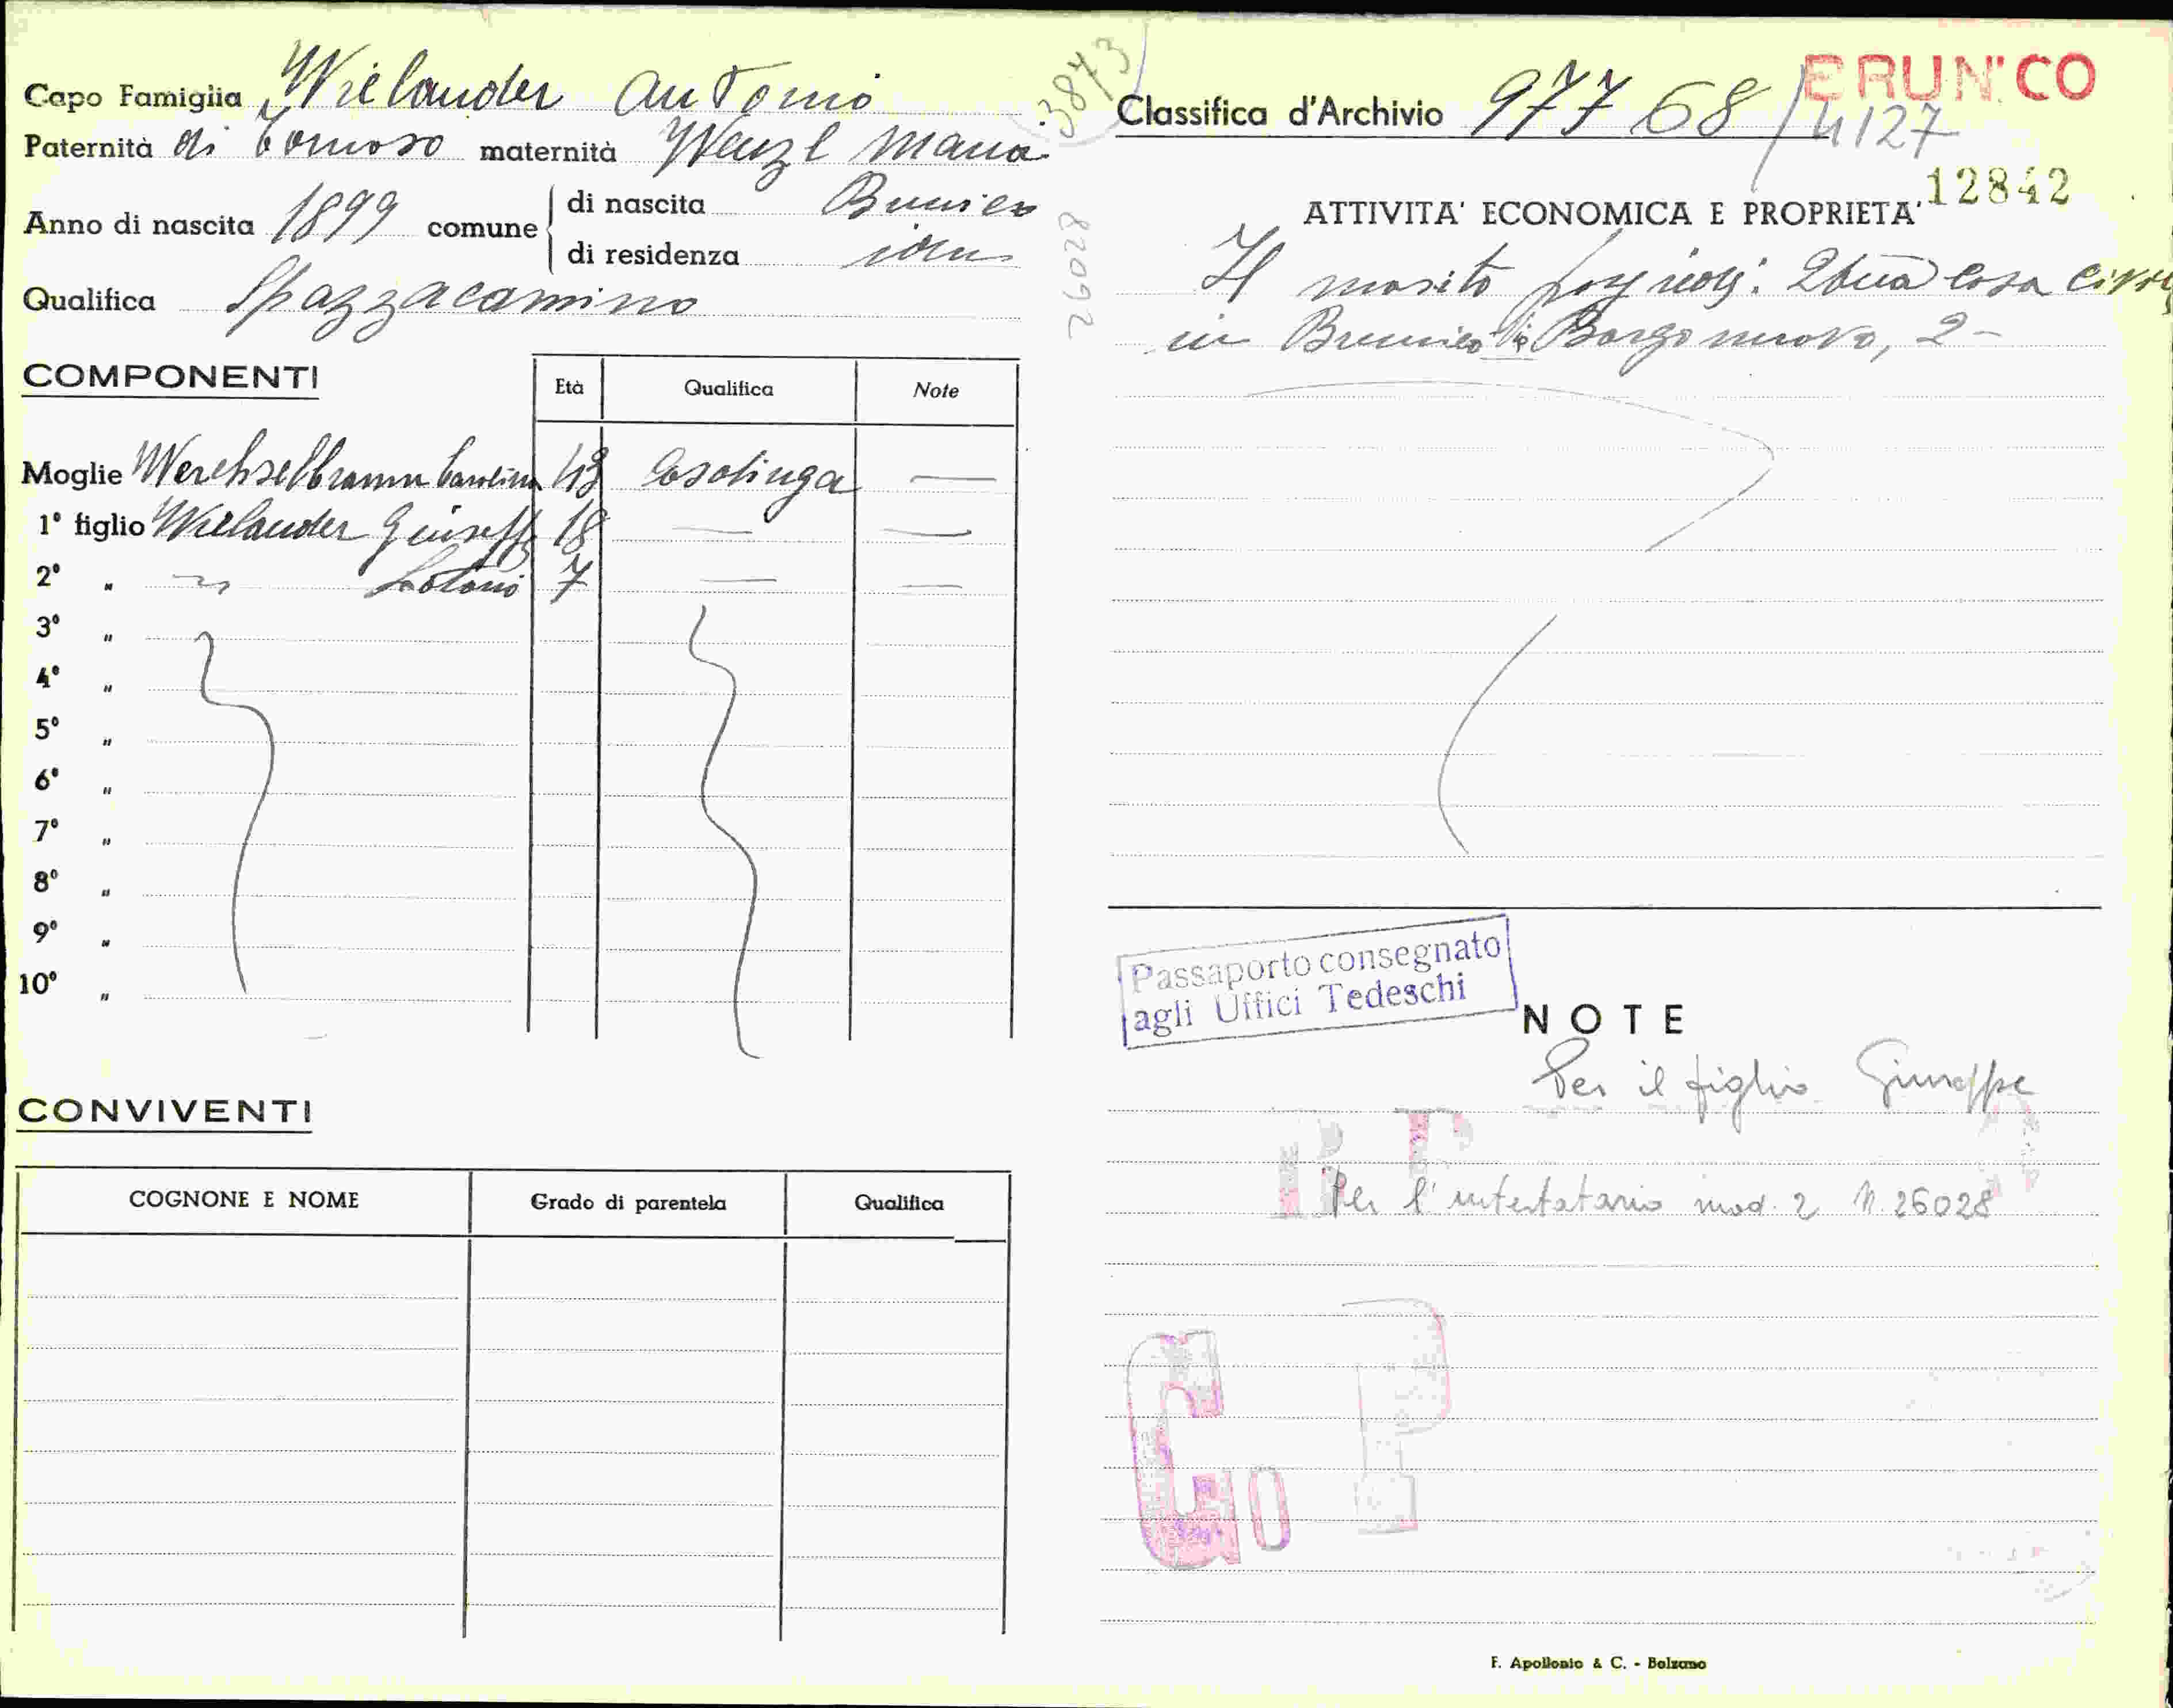 Capo Famiglia Wielander Antonio
Paternità di Tomaso maternità Wenzl Maria
Anno di nascita 1899 comune
di nascita Brunico
di residenza idem
Qualifica Spazzacamino
COMPONENTI
Età Qualifica Note
Moglie Werchselbraun Carolina 43 Casalinga —
1° figlio Wielander Giuseppe 18 — —
2° " Lotario 7 — —
3° "
4° "
5° "
6° "
7° "
8° "
9° "
10° "
CONVIVENTI
COGNONE E NOME Grado di parentela Qualifica
3873
26028
BRUNICO
Classifica d'Archivio 97768/4127
12842
ATTIVITA' ECONOMICA E PROPRIETA'
Il marito casa civile
in Brunico Borgo nuovo, 2 -
Passaporto consegnato
agli Uffici Tedeschi
NOTE
Per il figlio Giuseppe
Per l'intestatario mod. 2 N. 26028
G P
O
F. Apollonio & C. - Bolzano